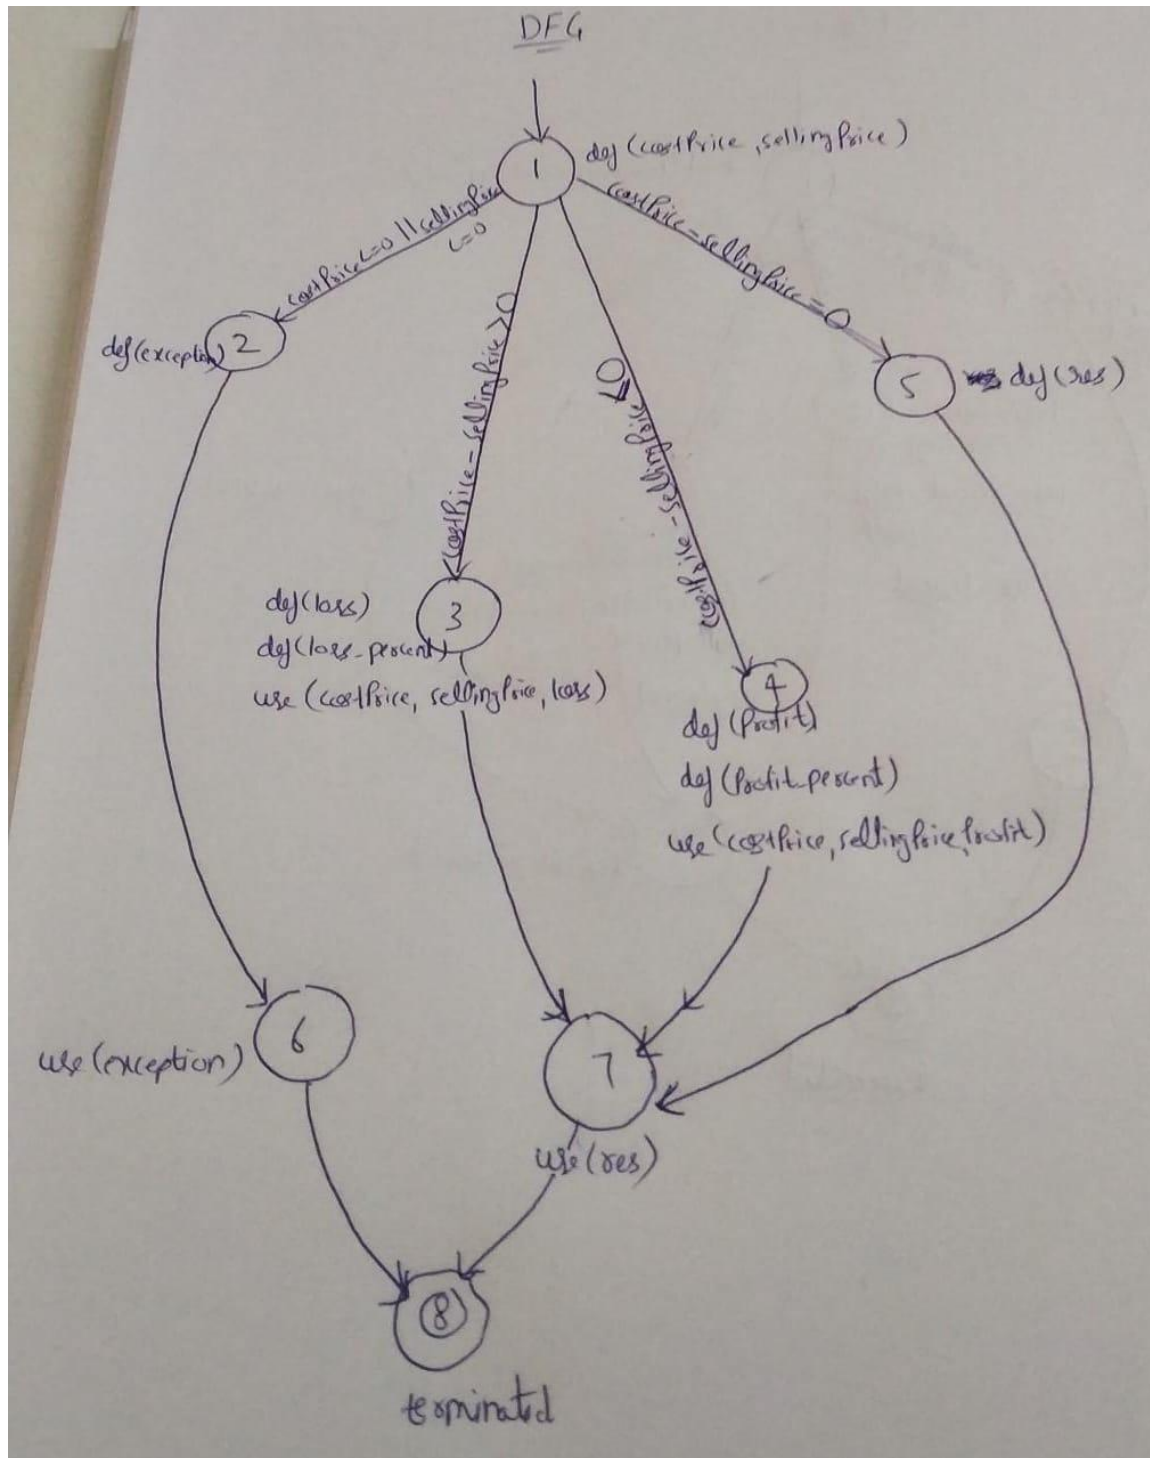 DFG
1
def (costPrice, sellingPrice)
costPrice <=0 || sellingPrice
<=0
costPrice - sellingPrice = 0
2
def(exception)
costPrice - sellingPrice > 0
costPrice - sellingPrice
5
def (res)
3
def(loss)
def(loss_percent)
use (costPrice, sellingPrice, loss)
4
def (Profit)
def (Profit_percent)
use (costPrice, sellingPrice, Profit)
6
use (exception)
7
use (res)
8
terminated